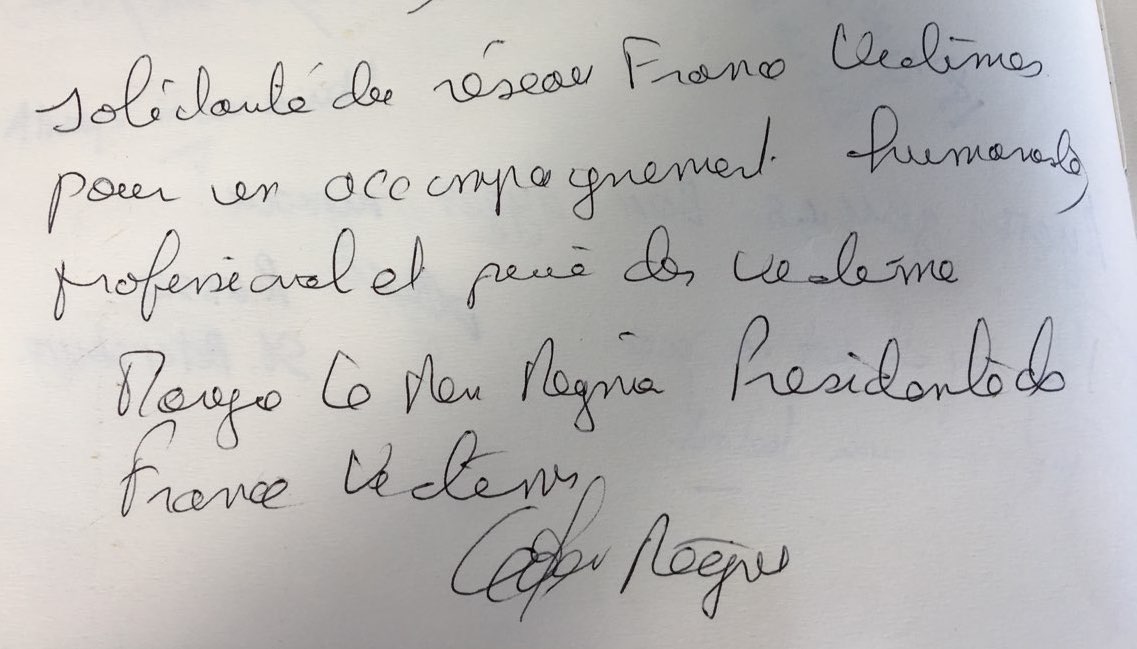 solidarité du réseau France Victimes
pour un accompagnement humaniste,
professionnel et des victime
Le Présidente de
France Victimes